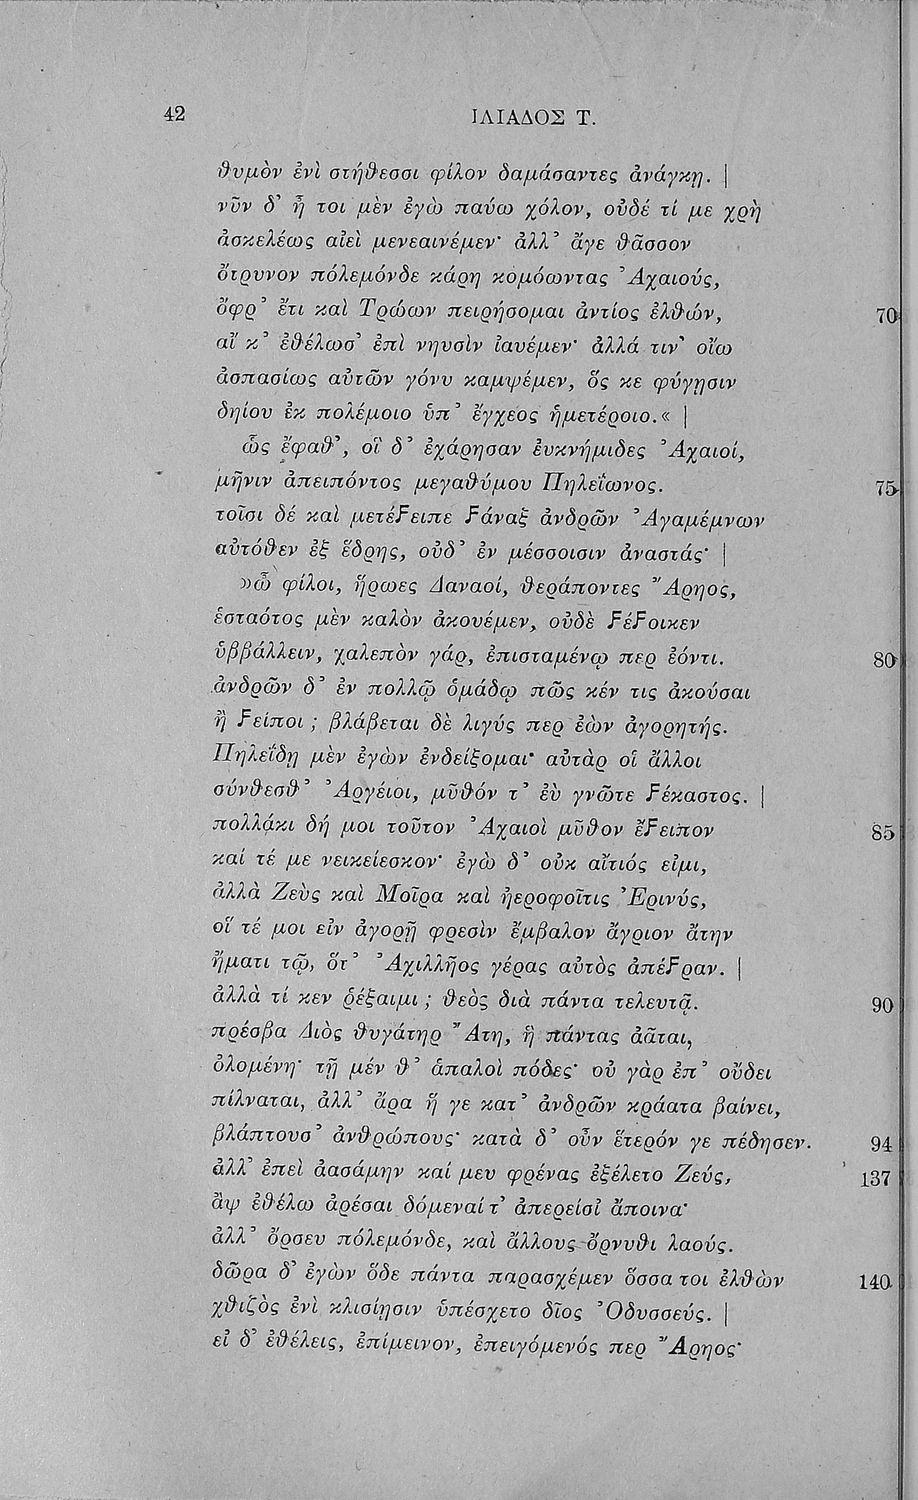 42 ΙΛΙΑΔΟΣ Τ.
θυμὸν ἐνὶ στήθεσσι φίλον δαμάσαντες ἀνάγκῃ. |
νῦν δ' ἦ τοι μὲν ἐγὼ παύω χόλον, οὐδέ τί με χρὴ
ἀσκελέως αἰεὶ μενεαινέμεν· ἀλλ' ἄγε θᾶσσον
ὄτρυνον πόλεμόνδε κάρη κομόωντας Ἀχαιούς,
ὄφρ' ἔτι καὶ Τρώων πειρήσομαι ἀντίος ἐλθών, 70
αἴ κ' ἐθέλωσ' ἐπὶ νηυσὶν ἰαυέμεν· ἀλλά τιν' οἴω
ἀσπασίως αὐτῶν γόνυ καμψέμεν, ὅς κε φύγῃσιν
δηίου ἐκ πολέμοιο ὑπ' ἔγχεος ἡμετέροιο.« |
ὣς ἔφαθ', οἳ δ' ἐχάρησαν ἐυκνήμιδες Ἀχαιοί,
μῆνιν ἀπειπόντος μεγαθύμου Πηλεΐωνος. 75
τοῖσι δέ καὶ μετέϝειπε ϝάναξ ἀνδρῶν Ἀγαμέμνων
αὐτόθεν ἐξ ἕδρης, οὐδ' ἐν μέσσοισιν ἀναστάς· |
»ὦ φίλοι, ἥρωες Δαναοί, θεράποντες Ἄρηος,
ἑσταότος μὲν καλὸν ἀκουέμεν, οὐδὲ ϝέϝοικεν
ὑββάλλειν, χαλεπὸν γάρ, ἐπισταμένῳ περ ἐόντι. 80
ἀνδρῶν δ' ἐν πολλῷ ὁμάδῳ πῶς κέν τις ἀκούσαι
ἢ ϝείποι ; βλάβεται δὲ λιγύς περ ἐὼν ἀγορητής.
Πηλεΐδῃ μὲν ἐγὼν ἐνδείξομαι· αὐτὰρ οἱ ἄλλοι
σύνθεσθ' Ἀργέιοι, μῦθόν τ' ἐὺ γνῶτε ϝέκαστος. |
πολλάκι δή μοι τοῦτον Ἀχαιοὶ μῦθον ἔϝειπον 85
καί τέ με νεικείεσκον· ἐγὼ δ' οὐκ αἴτιός εἰμι,
ἀλλὰ Ζεὺς καὶ Μοῖρα καὶ ἠεροφοῖτις Ἐρινύς,
οἵ τέ μοι εἰν ἀγορῇ φρεσὶν ἔμβαλον ἄγριον ἄτην
ἤματι τῷ, ὅτ' Ἀχιλλῆος γέρας αὐτὸς ἀπέϝραν. |
ἀλλὰ τί κεν ῥέξαιμι ; θεὸς διὰ πάντα τελευτᾷ. 90
πρέσβα Διὸς θυγάτηρ Ἄτη, ἣ πάντας ἀᾶται,
ὀλομένη· τῇ μέν θ' ἁπαλοὶ πόδες· οὐ γὰρ ἐπ' οὔδει
πίλναται, ἀλλ' ἄρα ἥ γε κατ' ἀνδρῶν κράατα βαίνει,
βλάπτουσ' ἀνθρώπους· κατὰ δ' οὖν ἕτερόν γε πέδησεν. 94
ἀλλ' ἐπεὶ ἀασάμην καί μευ φρένας ἐξέλετο Ζεύς, 137
ἂψ ἐθέλω ἀρέσαι δόμεναί τ' ἀπερείσι' ἄποινα·
ἀλλ' ὄρσευ πόλεμόνδε, καὶ ἄλλους ὄρνυθι λαούς.
δῶρα δ' ἐγὼν ὅδε πάντα παρασχέμεν ὅσσα τοι ἐλθὼν 140
χθιζὸς ἐνὶ κλισίῃσιν ὑπέσχετο δῖος Ὀδυσσεύς. |
εἰ δ' ἐθέλεις, ἐπίμεινον, ἐπειγόμενός περ Ἄρηος·